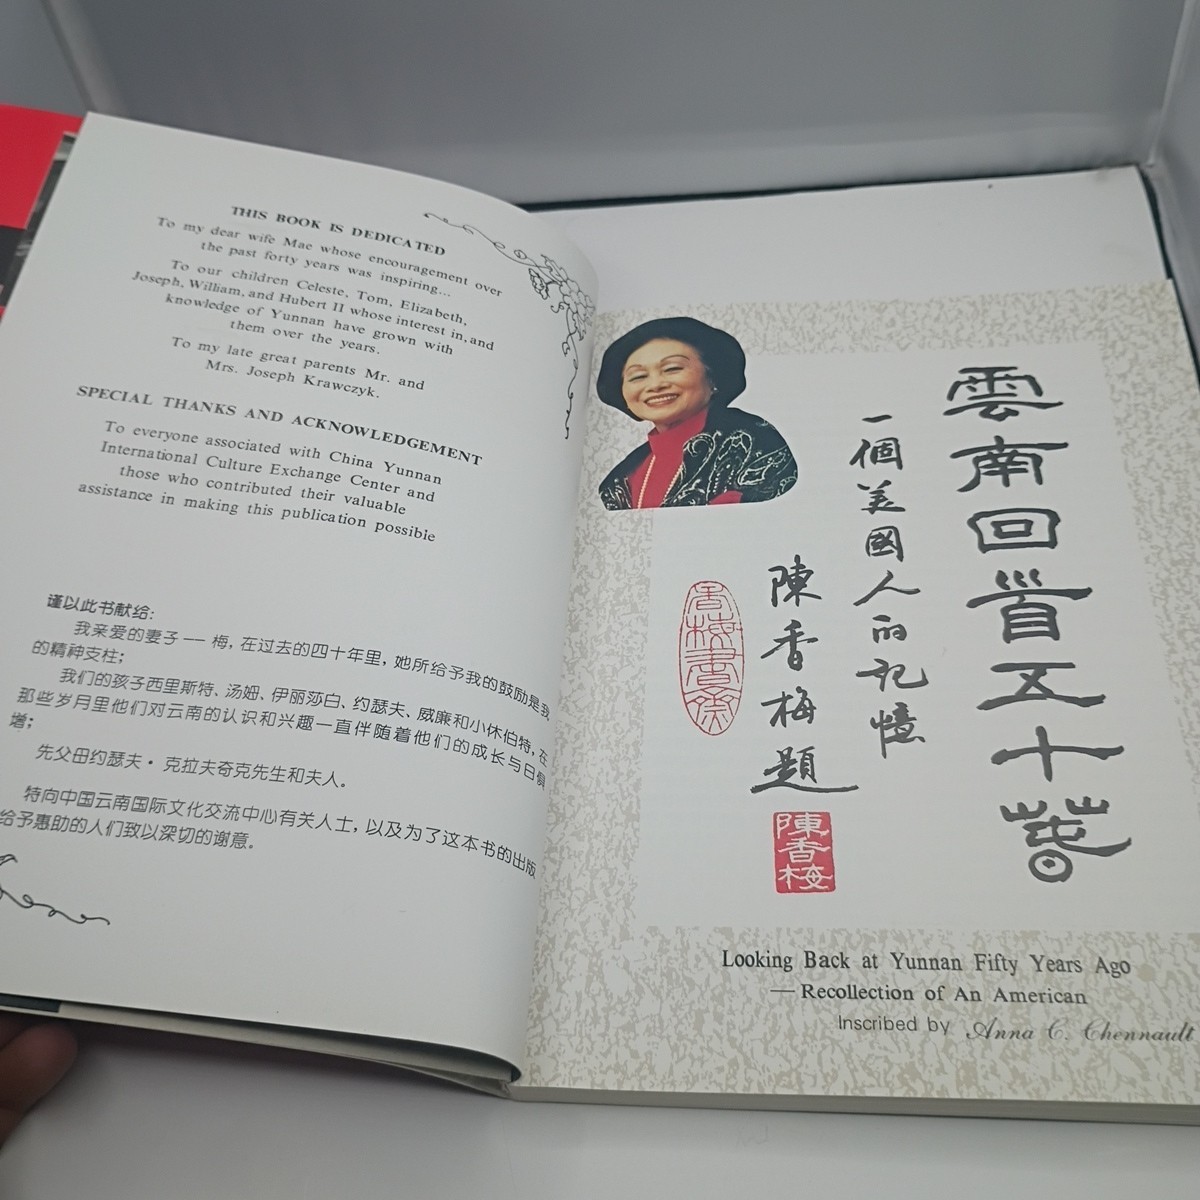 THIS BOOK IS DEDICATED
To my dear wife Mae whose encouragement over
the past forty years was inspiring...
To our children Celeste, Tom, Elizabeth,
Joseph, William, and Hubert II whose interest in, and
knowledge of Yunnan have grown with
them over the years.
To my late great parents Mr. and
Mrs. Joseph Krawczyk.
SPECIAL THANKS AND ACKNOWLEDGEMENT
To everyone associated with China Yunnan
International Culture Exchange Center and
those who contributed their valuable
assistance in making this publication possible
谨以此书献给:
我亲爱的妻子——梅,在过去的四十年里,她所给予我的鼓励是我
的精神支柱;
我们的孩子西里斯特、汤姆、伊丽莎白、约瑟夫、威廉和小休伯特,在
那些岁月里他们对云南的认识和兴趣一直伴随着他们的成长与日俱
增;
先父母约瑟夫·克拉夫奇克先生和夫人。
特向中国云南国际文化交流中心有关人士,以及为了这本书的出版
给予惠助的人们致以深切的谢意。
雲南回首五十春
一個美國人的記憶
陳香梅題
香梅書齋
陳香梅
Looking Back at Yunnan Fifty Years Ago
— Recollection of An American
Inscribed by Anna C. Chennault